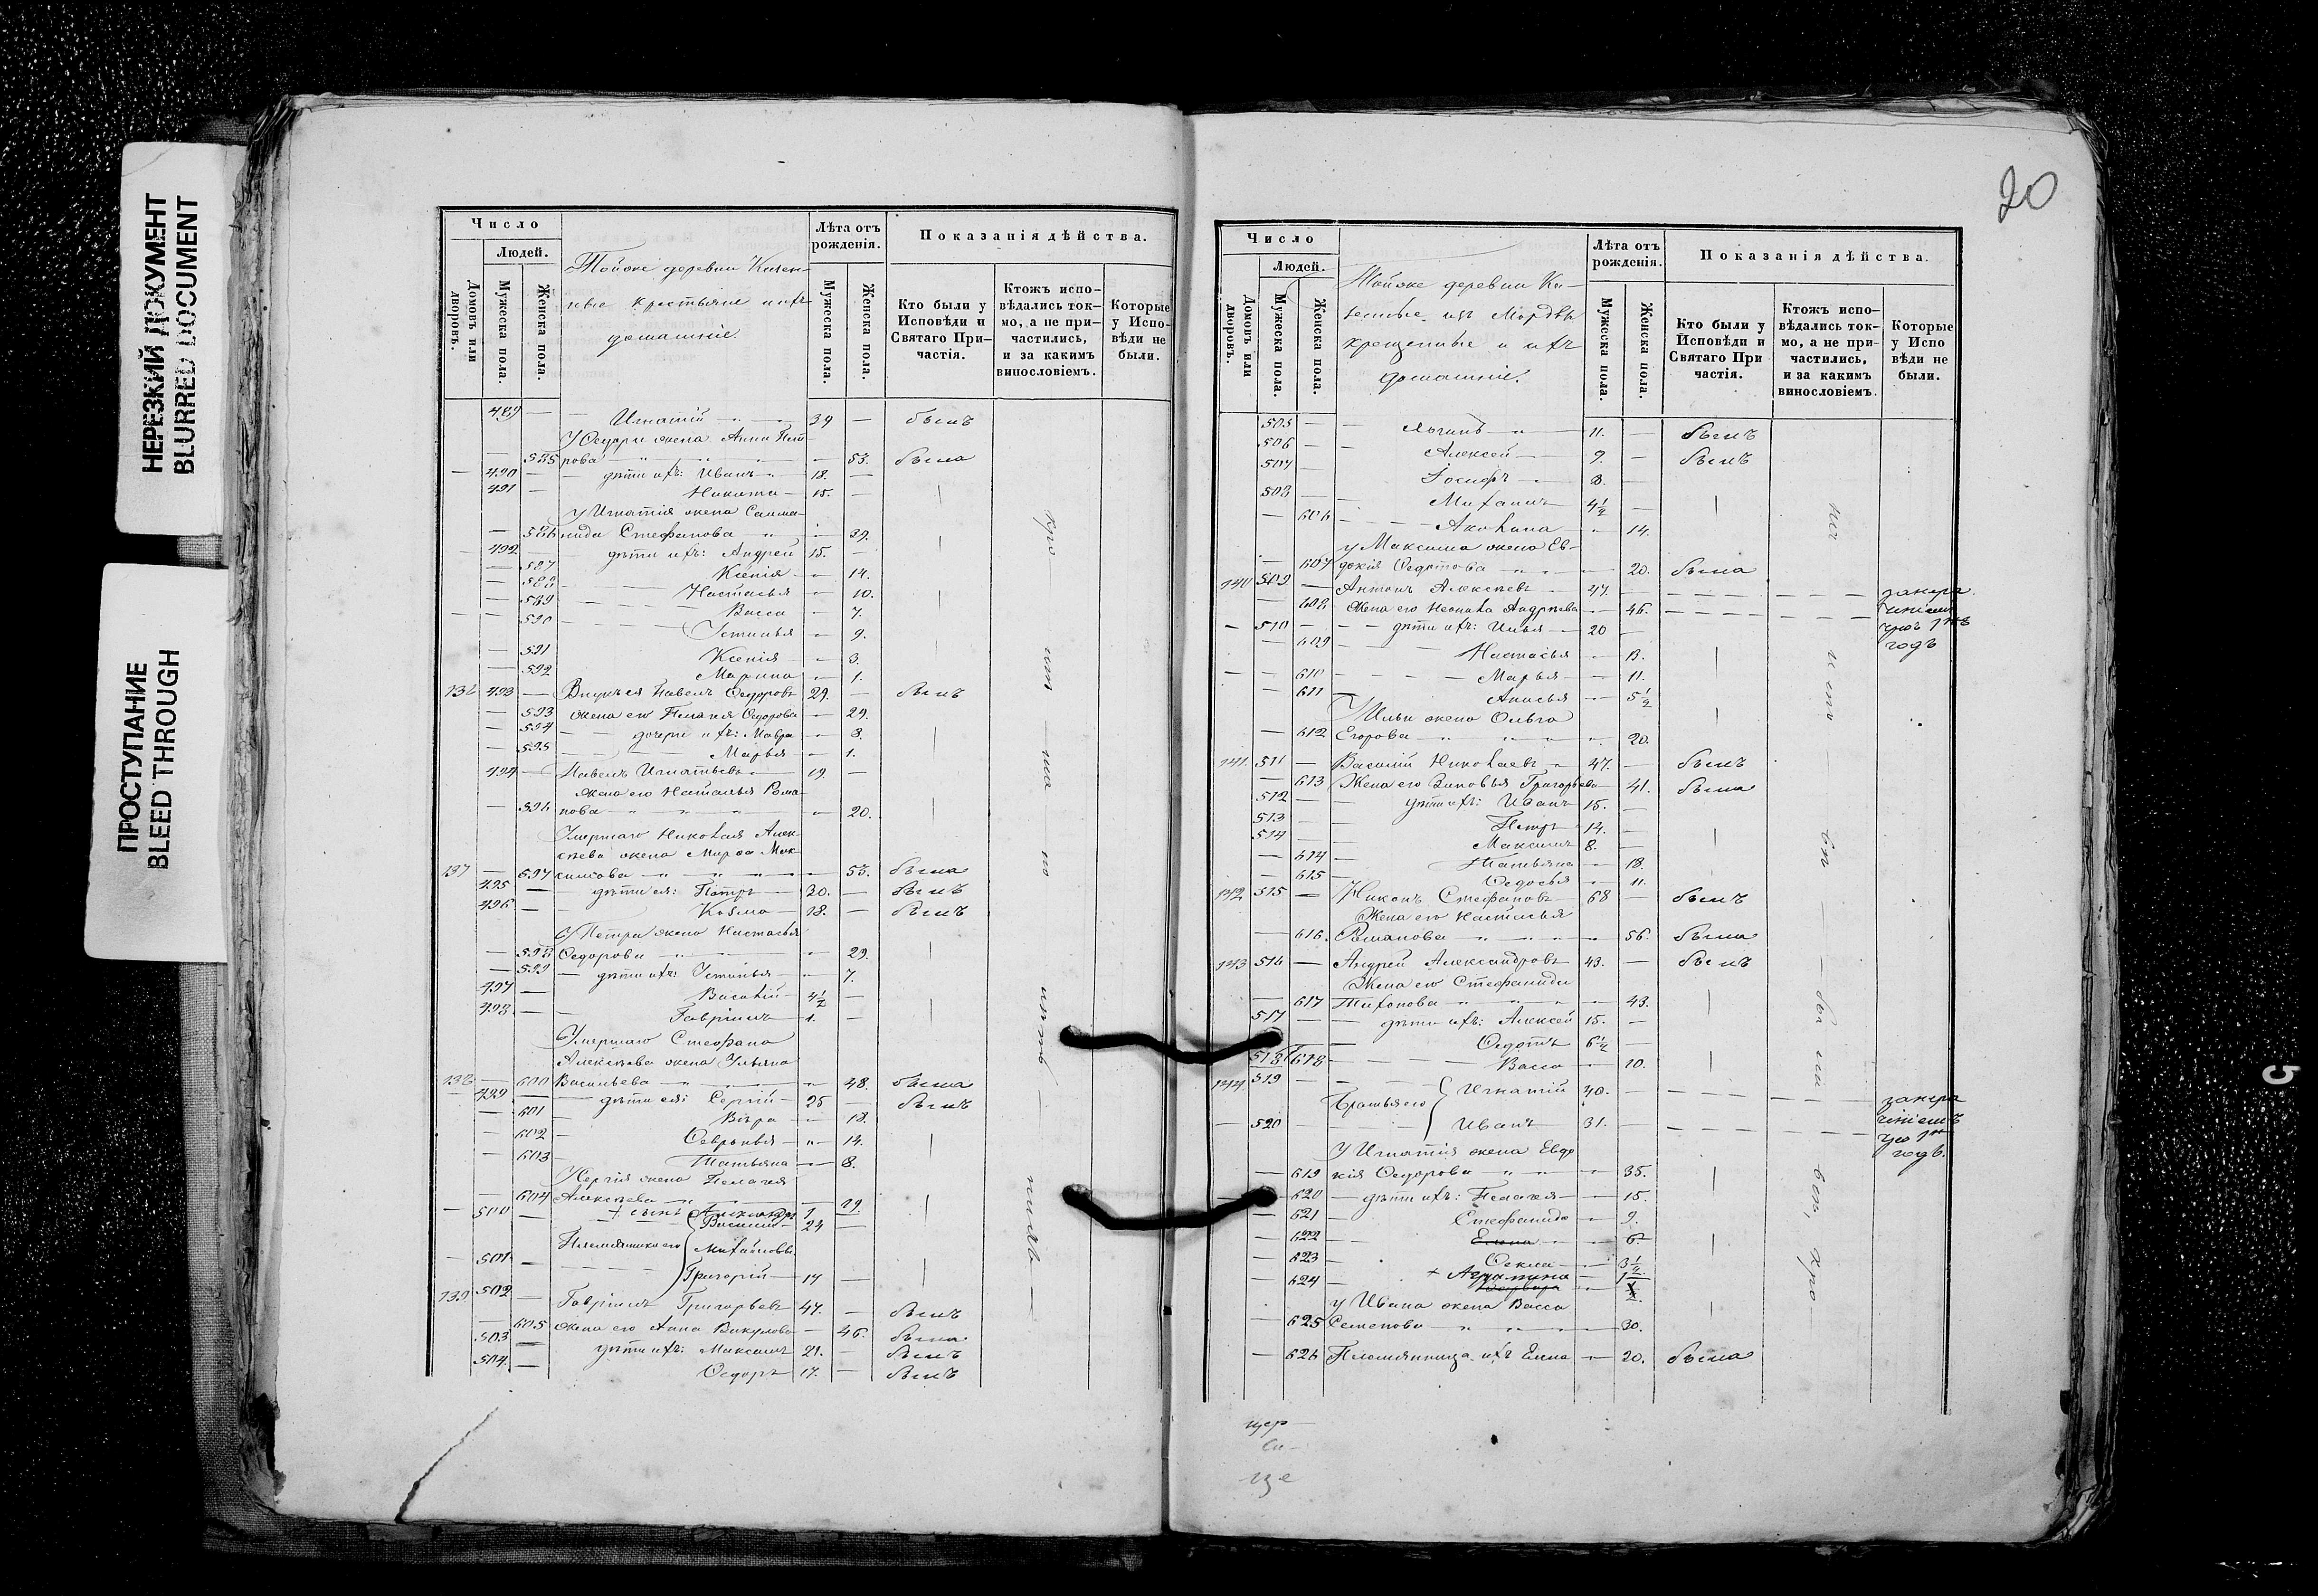 НЕРЕЗКИЙ ДОКУМЕНТ
BLURRED DOCUMENT
ПРОСТУПАНИЕ
BLEED THROUGH
Число
Людей.
Домовъ или дворовъ.
Мужеска пола.
Женска пола.
Тойже деревни Казен-
ные крестьяне и ихъ
домашніе.
Лѣта отъ рожденія.
Мужеска пола.
Женска пола.
Показанія дѣйства.
Кто были у Исповѣди и Святаго При-частія.
Ктожъ испо-вѣдались ток-мо, а не при-частились, и за какимъ винословіемъ.
Которые у Испо-вѣди не были.
489 — Игнатій 39 — былъ
У Ѳедора жена Анна Пет-
585 рова — 53. была
490 — дѣти ихъ: Иванъ 18. —
491 — Никита 15. —
у Игнатія жена Салма-
586 нида Стефанова — 39.
492 — дѣти ихъ: Андрей 15. —
587 Ксенія — 14.
588 Настасья — 10.
589 Васса — 7.
590 Устинья — 9.
591 Ксенія — 3.
592 Марина — 1.
136 493 — Внукъ ея Павелъ Ѳедоровъ 29. — былъ
593 жена его Пелагея Ѳедорова — 29.
594 дочери ихъ: Мавра — 3.
595 Марья — 1.
494 — Павелъ Игнатьевъ 19. —
жена его Наталья Рома-
596 нова — 20.
Умершаго Николая Алек-
сѣева жена Марѳа Мак-
137 — 597 симова — 53. была
495 — дѣти ея: Петръ 30. — былъ
496 — Козма 18. — былъ
У Петра жена Настасья
598 Ѳедорова — 29.
599 — дѣти ихъ: Устинья — 7.
497 — Василій 4½ —
498 — Гавріилъ 1. —
Умершаго Стефана
Алексѣева жена Ульяна
138 — 600 Васильева — 48. была
499 — дѣти ея: Сергій 25 — былъ
601 Вѣра — 18.
602 Ѳевронья — 14.
603 Татьяна — 8.
У Сергія жена Пелагея
604 Алексѣева — 29.
500 — + сынъ Александръ 1
Василій 24 —
Племянники его Михайловы
501 — Григорій 17 —
139 502 — Гавріилъ Григорьевъ 47. — былъ
605 жена его Анна Викулова — 46. была
503 — дѣти ихъ: Максимъ 21. — былъ
504. — Ѳедоръ 17. — былъ
20
Число
Людей.
Домовъ или дворовъ.
Мужеска пола.
Женска пола.
Тойже деревни Ка-
зенные изъ Мордвы
крещенные и ихъ
домашніе.
Лѣта отъ рожденія.
Мужеска пола.
Женска пола.
Показанія дѣйства.
Кто были у Исповѣди и Святаго При частія.
Ктожъ испо-вѣдались ток-мо, а не при-частились, и за какимъ винословіемъ.
Которые у Испо вѣди не были.
505 — Логинъ 11. — былъ
506 — Алексѣй 9. — былъ
507 — Іосифъ 8. —
508 — Михаилъ 4½ —
606 Акилина — 14.
у Максима жена Ев-
607 докія Ѳедотова — 20. была
140 509 — Антонъ Алексѣевъ 47. —
608 Жена его Неонила Андреева — 46.
510 — дѣти ихъ: Илья 20 —
609 Настасья — 13.
610 Марья — 11.
611 Анисья — 5½
У Ильи жена Ольга
612 Егорова — 20.
141. 511 — Василій Николаевъ 47. — былъ
613 Жена его Зиновья Григорьева — 41. была
512 — дѣти ихъ: Иванъ 15. —
513 — Петръ 14. —
514 — Максимъ 8. —
614 Татьяна — 18.
615 Ѳедосья — 11.
142 515 — Никонъ Стефановъ 68 — былъ
Жена его Настасья
616. Романова — 56. была
143 516 — Андрей Александровъ 43. — былъ
Жена его Стефанида
617 Тихонова — 43.
517 — дѣти ихъ: Алексѣй 15. —
Ѳедотъ 6½ —
518 618 Васса — 10.
144. 519 — Игнатій 40. —
Братья его
520 — Иванъ 31. —
У Игнатія жена Евдо
619 кія Ѳедорова — 35.
620 — дѣти ихъ: Пелагея — 15.
621 Стефанида — 9.
622 Елена — 6
623 Ѳекла — 3½
624 + Агрипина — 1
у Ивана жена Васса
625 Семенова — 30.
626 Племянница ихъ Елена — 20. была
5